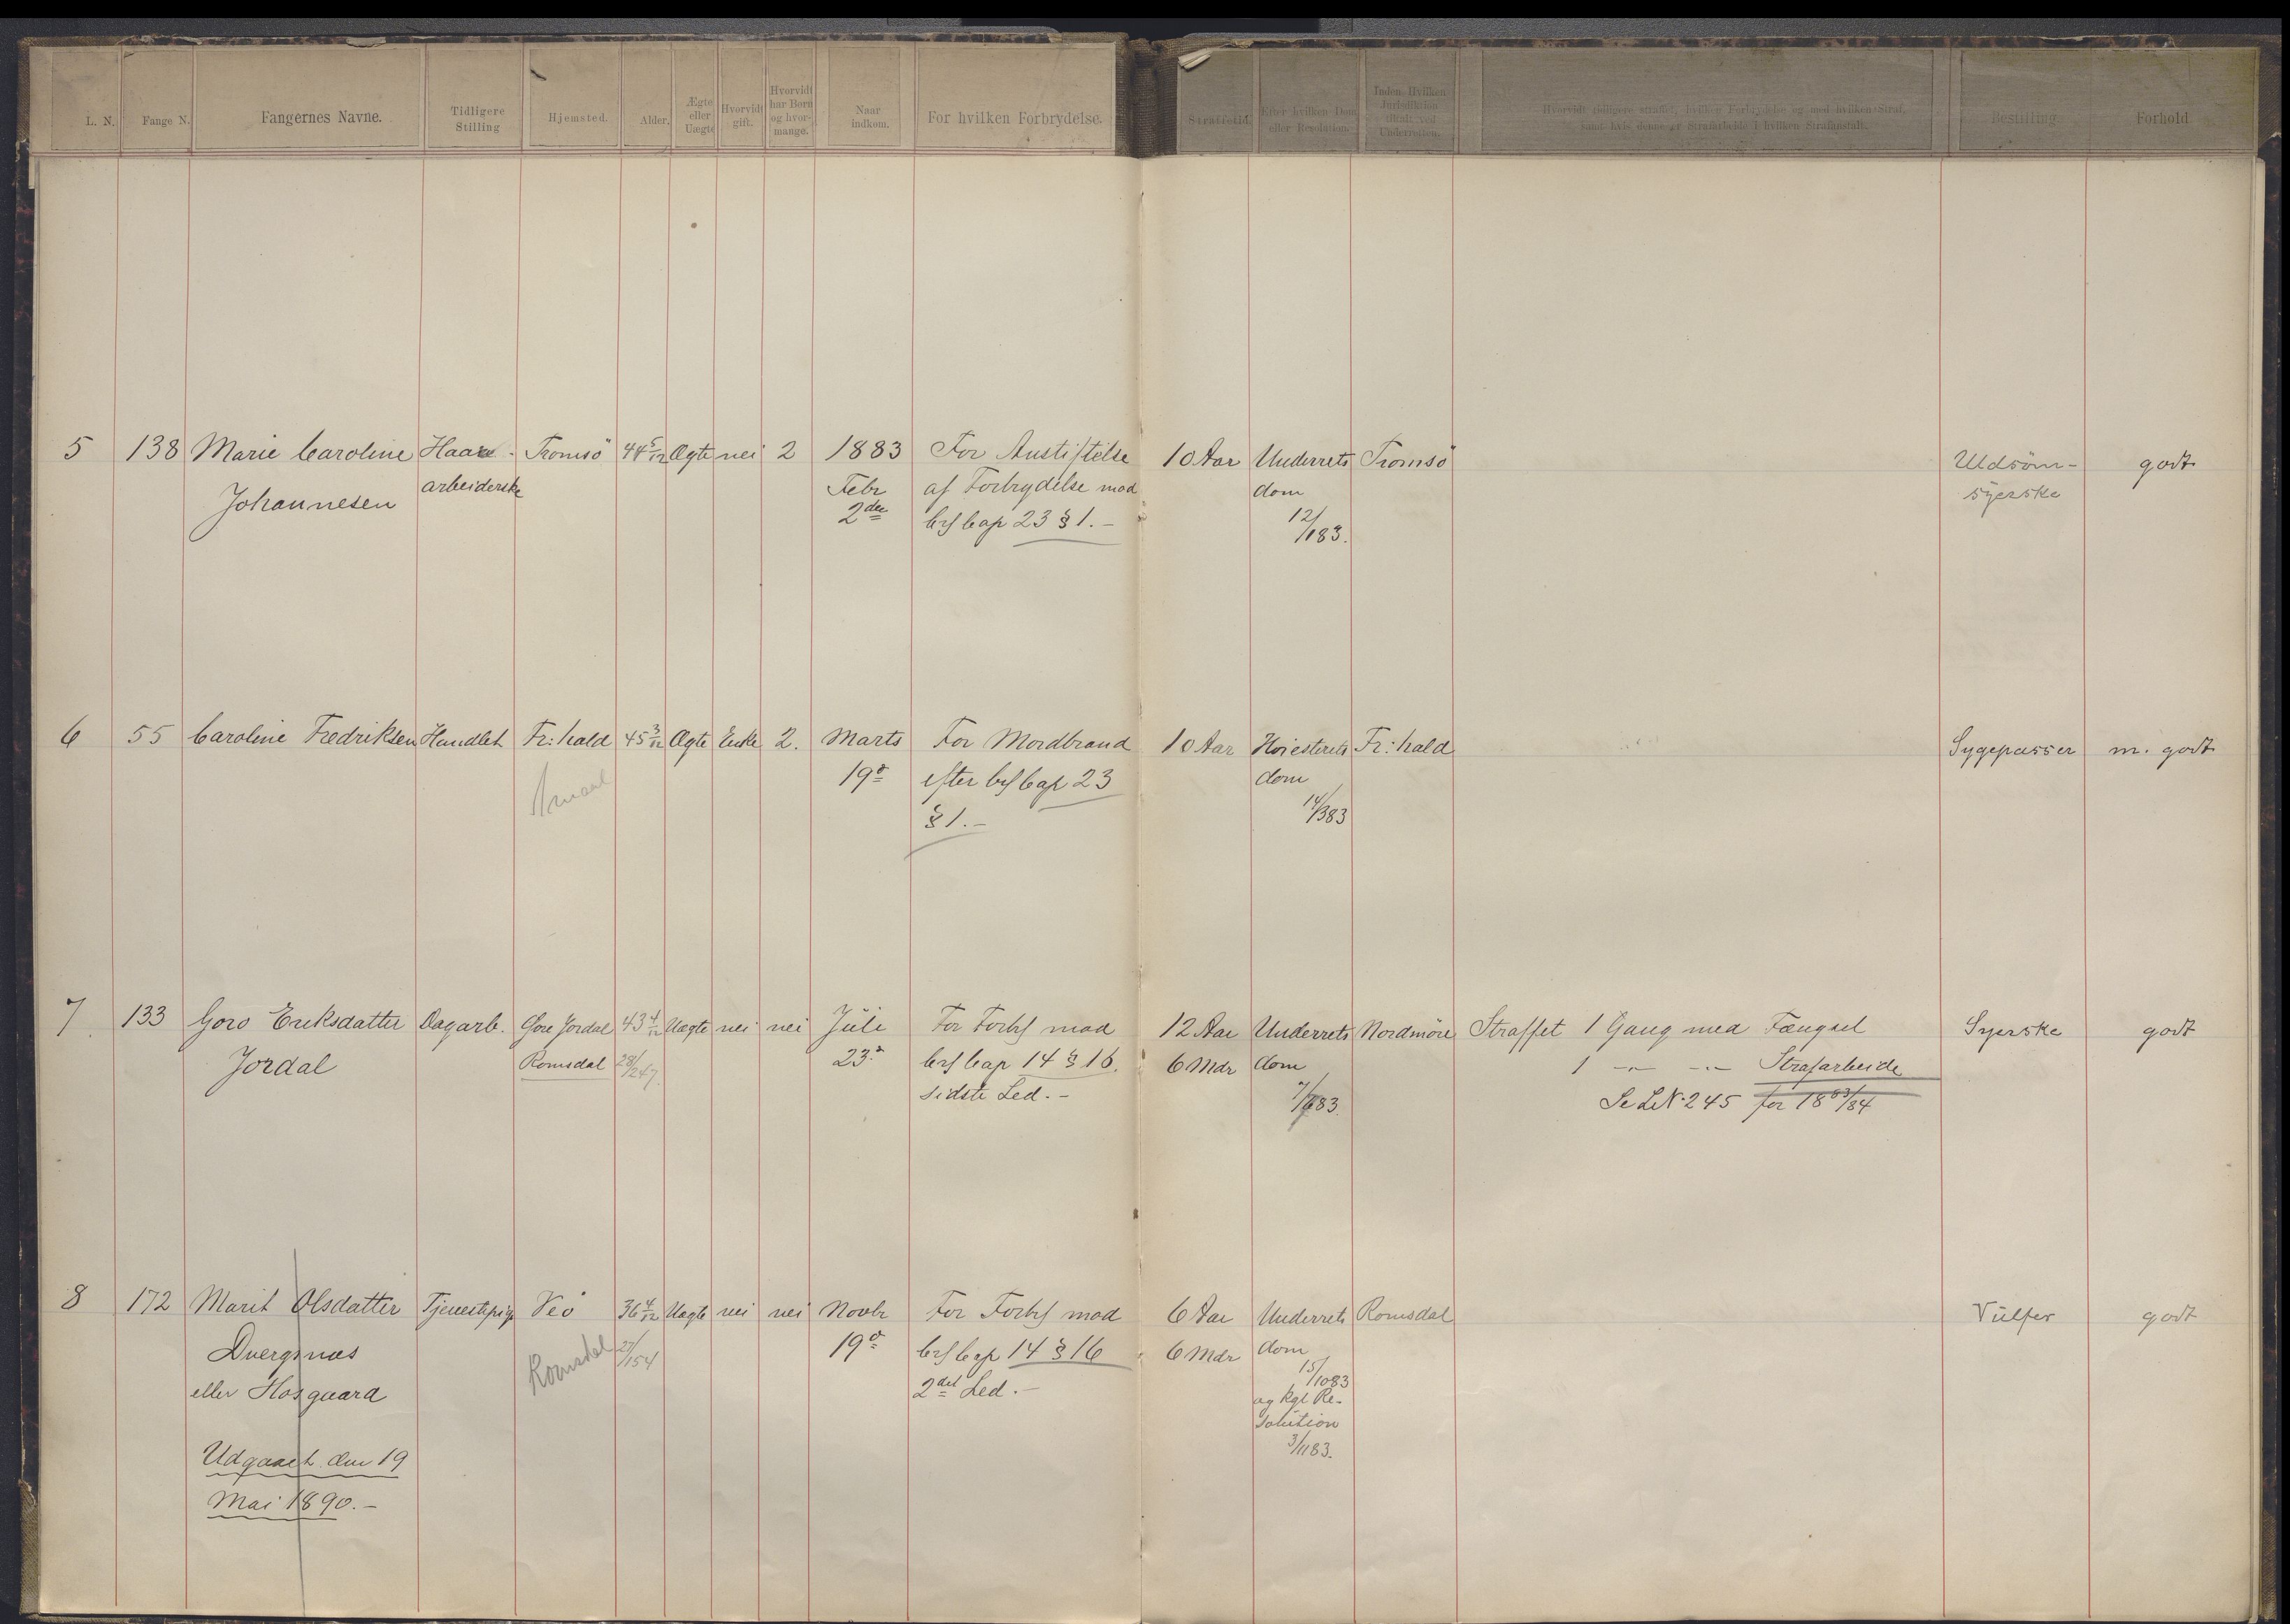 L. N. Fange N. Fangernes Navne. Tidligere Stilling Hjemsted. Alder. Ægte eller Uægte Hvorvidt gift. Hvorvidt har Børn og hvor-mange. Naar indkom. For hvilken Forbrydelse. Straffetid. Efter hvilken Dom eller Resolution. Inden Hvilken Jurisdiktion tiltalt ved Underretten. Hvorvidt tidligere straffet, hvilken Forbrydelse og med hvilken Straf, samt hvis denne er Strafarbeide i hvilken Strafanstalt. Bestilling Forhold
5 138 Marie Caroline Haar- Tromsö 44 5/12 Ægte nei 2 1883 For Anstiftelse 10 Aar Underrets Tromsö Uldsöm- godt
Johannesen arbeiderske Febr af Forbrydelse mod dom syerske
2den Crl Cap 23 § 1.- 12/1 83.
6 55 Caroline Fredriksen Handlet Fr:hald 45 3/12 Ægte Enke 2. Marts For Mordbrand 10 Aar Höiesterets Fr:hald Sygepasser m. godt
19d efter Crl Cap 23 dom
§ 1.- 14/3 83
7 133 Goro Eriksdatter Dagarb. Öre Jordal 43 4/12 Uægte nei nei Juli For Forbr mod 12 Aar Underrets Nordmöre Straffet 1 Gang med Fængsel Syerske godt
Jordal Romsdal 28/2 47. 23d Crl Cap 14 § 16. 6 Mdr dom 1 -"- -"- Strafarbeide
sidste Led.- 7/6 83. Se LN. 245 for 18 83/84
8 172 Marit Olsdatter Tjenestepige Veö 36 4/12 Uægte nei nei Novbr For Forbr mod 6 Aar Underrets Romsdal Vülfer godt
Dvergsnæs Romsdal 27/1 54 19d Crl Cap 14 § 16 6 Mdr dom
eller Hosgaard 2det Led.- 15/10 83
og Kgl Re-
solution
Udgaaet den 19 3/11 83.
Mai 1890.-